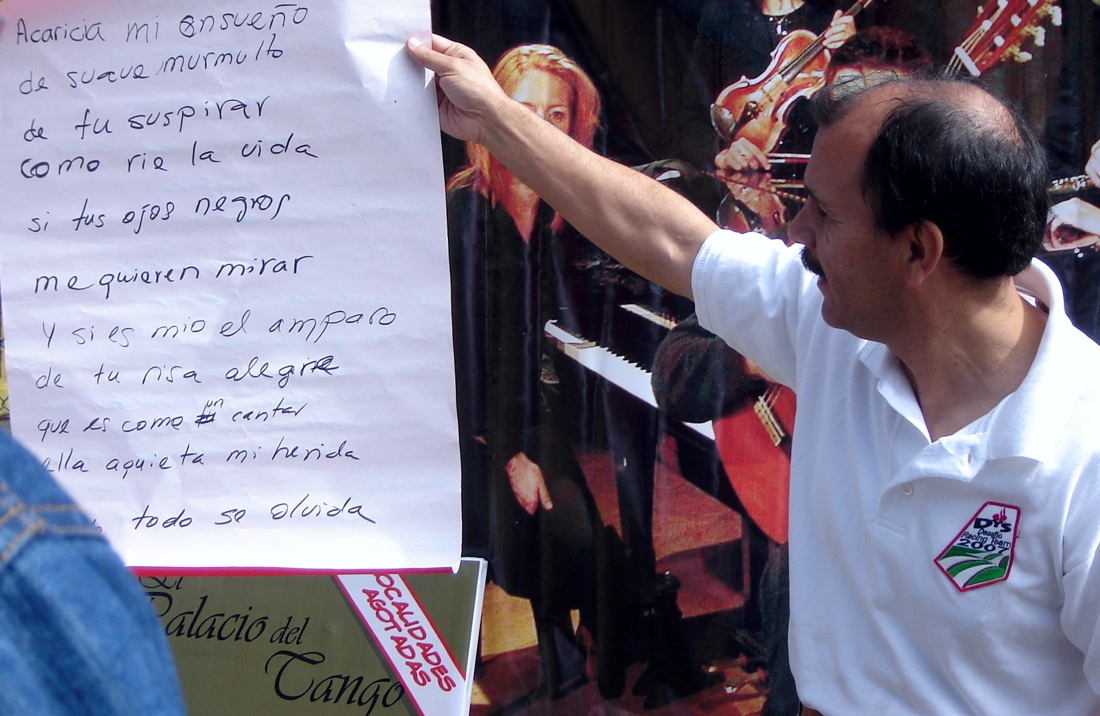 Acaricia mi ensueño
de suave murmullo
de tu suspirar
como rie la vida
si tus ojos negros
me quieren mirar
Y si es mio el amparo
de tu risa alegre
que es como un cantar
ella aquieta mi herida
todo se olvida
El
Palacio del
Tango
LOCALIDADES
AGOTADAS
DYS
Desafio
Racing Team
2007